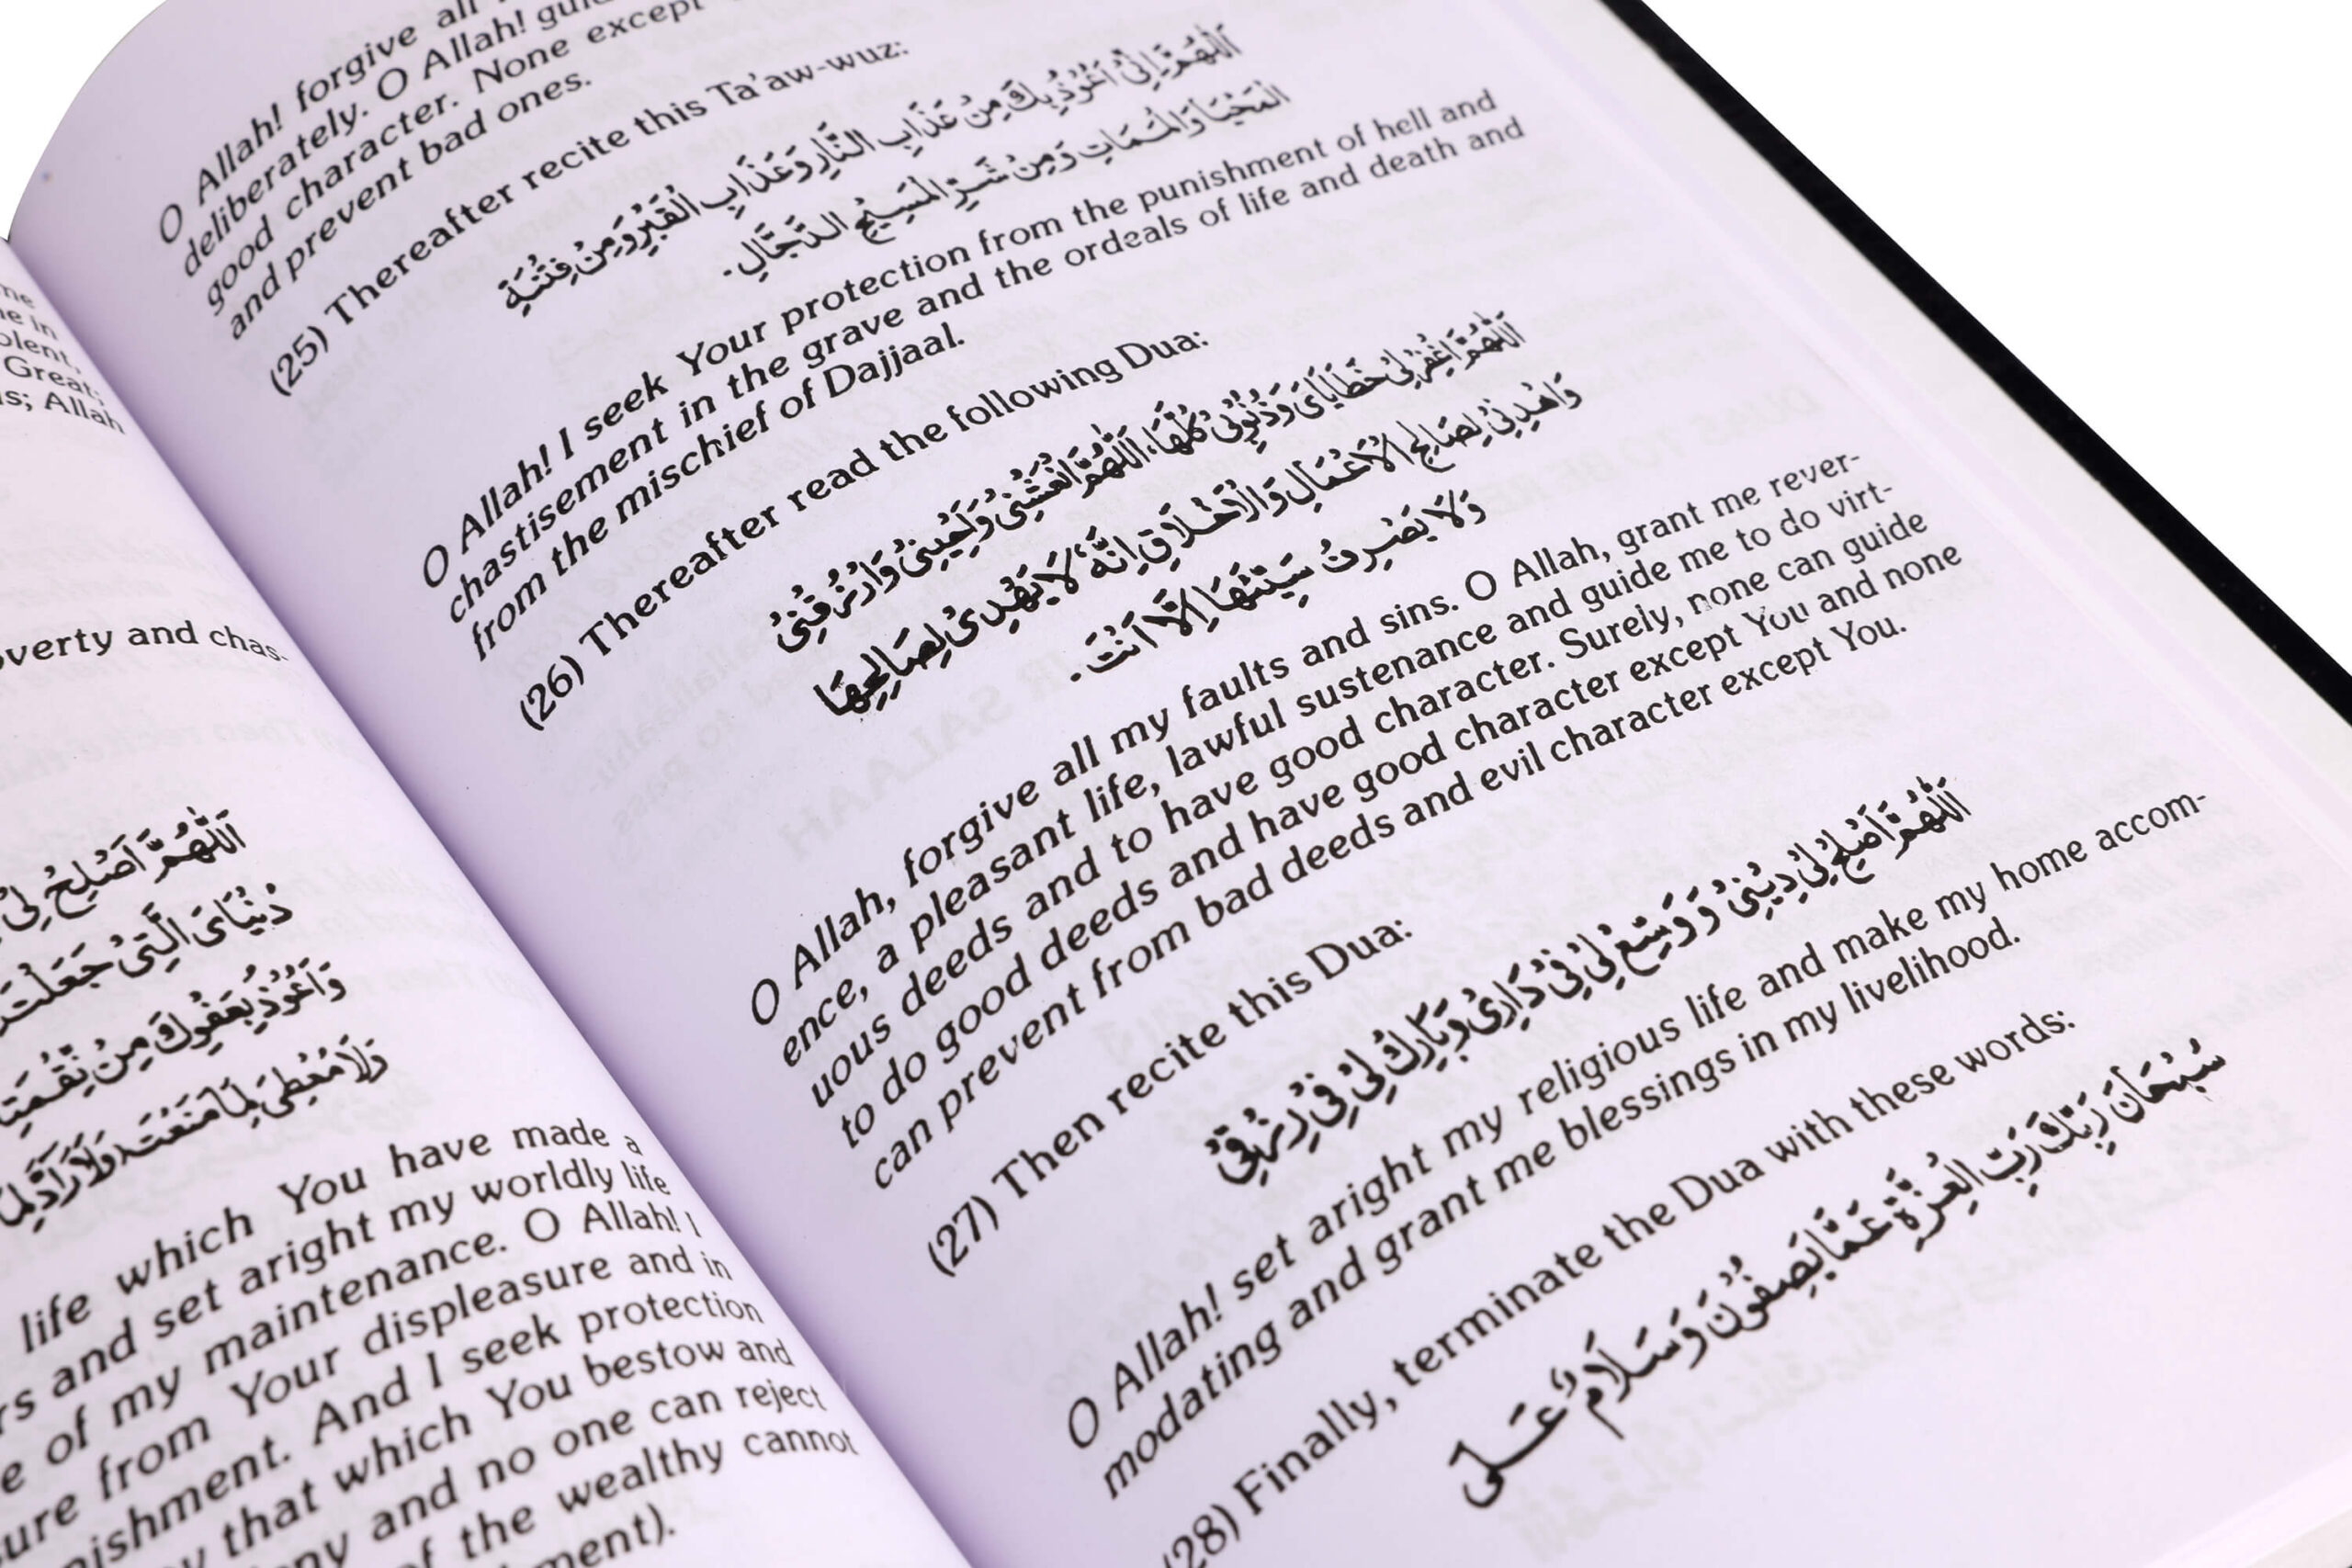 me
ne in
olent,
Great;
s; Allah
overty and chas-
اَللّٰهُمَّ اَصْلِحْ لِىْ
دُنْيَاىَ الَّتِىْ جَعَلْتَ
وَاَعُوْذُ بِعَفْوِكَ مِنْ نِّقْمَتِ
وَلَا مُعْطِىَ لِمَا مَنَعْتَ وَلَا رَآدَّ لِمَا
life which You have made a
rs and set aright my worldly life
e of my maintenance. O Allah! I
ure from Your displeasure and in
nishment. And I seek protection
y that which You bestow and
ny and no one can reject
of the wealthy cannot
ment).
O Allah! forgive all
deliberately. O Allah! guid
good character. None except
and prevent bad ones.
(25) Thereafter recite this Ta'aw-wuz:
اَللّٰهُمَّ اِنِّىْ اَعُوْذُ بِكَ مِنْ عَذَابِ النَّارِ وَعَذَابِ الْقَبْرِ وَمِنْ فِتْنَةِ
الْمَحْيَا وَالْمَمَاتِ وَمِنْ شَرِّ الْمَسِيْحِ الدَّجَّالِ.
O Allah! I seek Your protection from the punishment of hell and
chastisement in the grave and the ordeals of life and death and
from the mischief of Dajjaal.
(26) Thereafter read the following Dua:
اَللّٰهُمَّ اغْفِرْ لِىْ خَطَايَاىَ وَذُنُوْبِىْ كُلَّهَا، اَللّٰهُمَّ انْعَشْنِىْ وَاَحْيِنِىْ وَارْزُقْنِىْ
وَاهْدِنِىْ لِصَالِحِ الْاَعْمَالِ وَالْاَخْلَاقِ اِنَّهُ لَا يَهْدِىْ لِصَالِحِهَا
وَلَا يَصْرِفُ سَيِّئَهَا اِلَّا اَنْتَ.
O Allah, forgive all my faults and sins. O Allah, grant me rever-
ence, a pleasant life, lawful sustenance and guide me to do virt-
uous deeds and to have good character. Surely, none can guide
to do good deeds and have good character except You and none
can prevent from bad deeds and evil character except You.
(27) Then recite this Dua:
اَللّٰهُمَّ اَصْلِحْ لِىْ دِيْنِىْ وَوَسِّعْ لِىْ فِىْ دَارِىْ وَبَارِكْ لِىْ فِىْ رِزْقِىْ
O Allah! set aright my religious life and make my home accom-
modating and grant me blessings in my livelihood.
(28) Finally, terminate the Dua with these words:
سُبْحَانَ رَبِّكَ رَبِّ الْعِزَّةِ عَمَّا يَصِفُوْنَ وَسَلَامٌ عَلَى